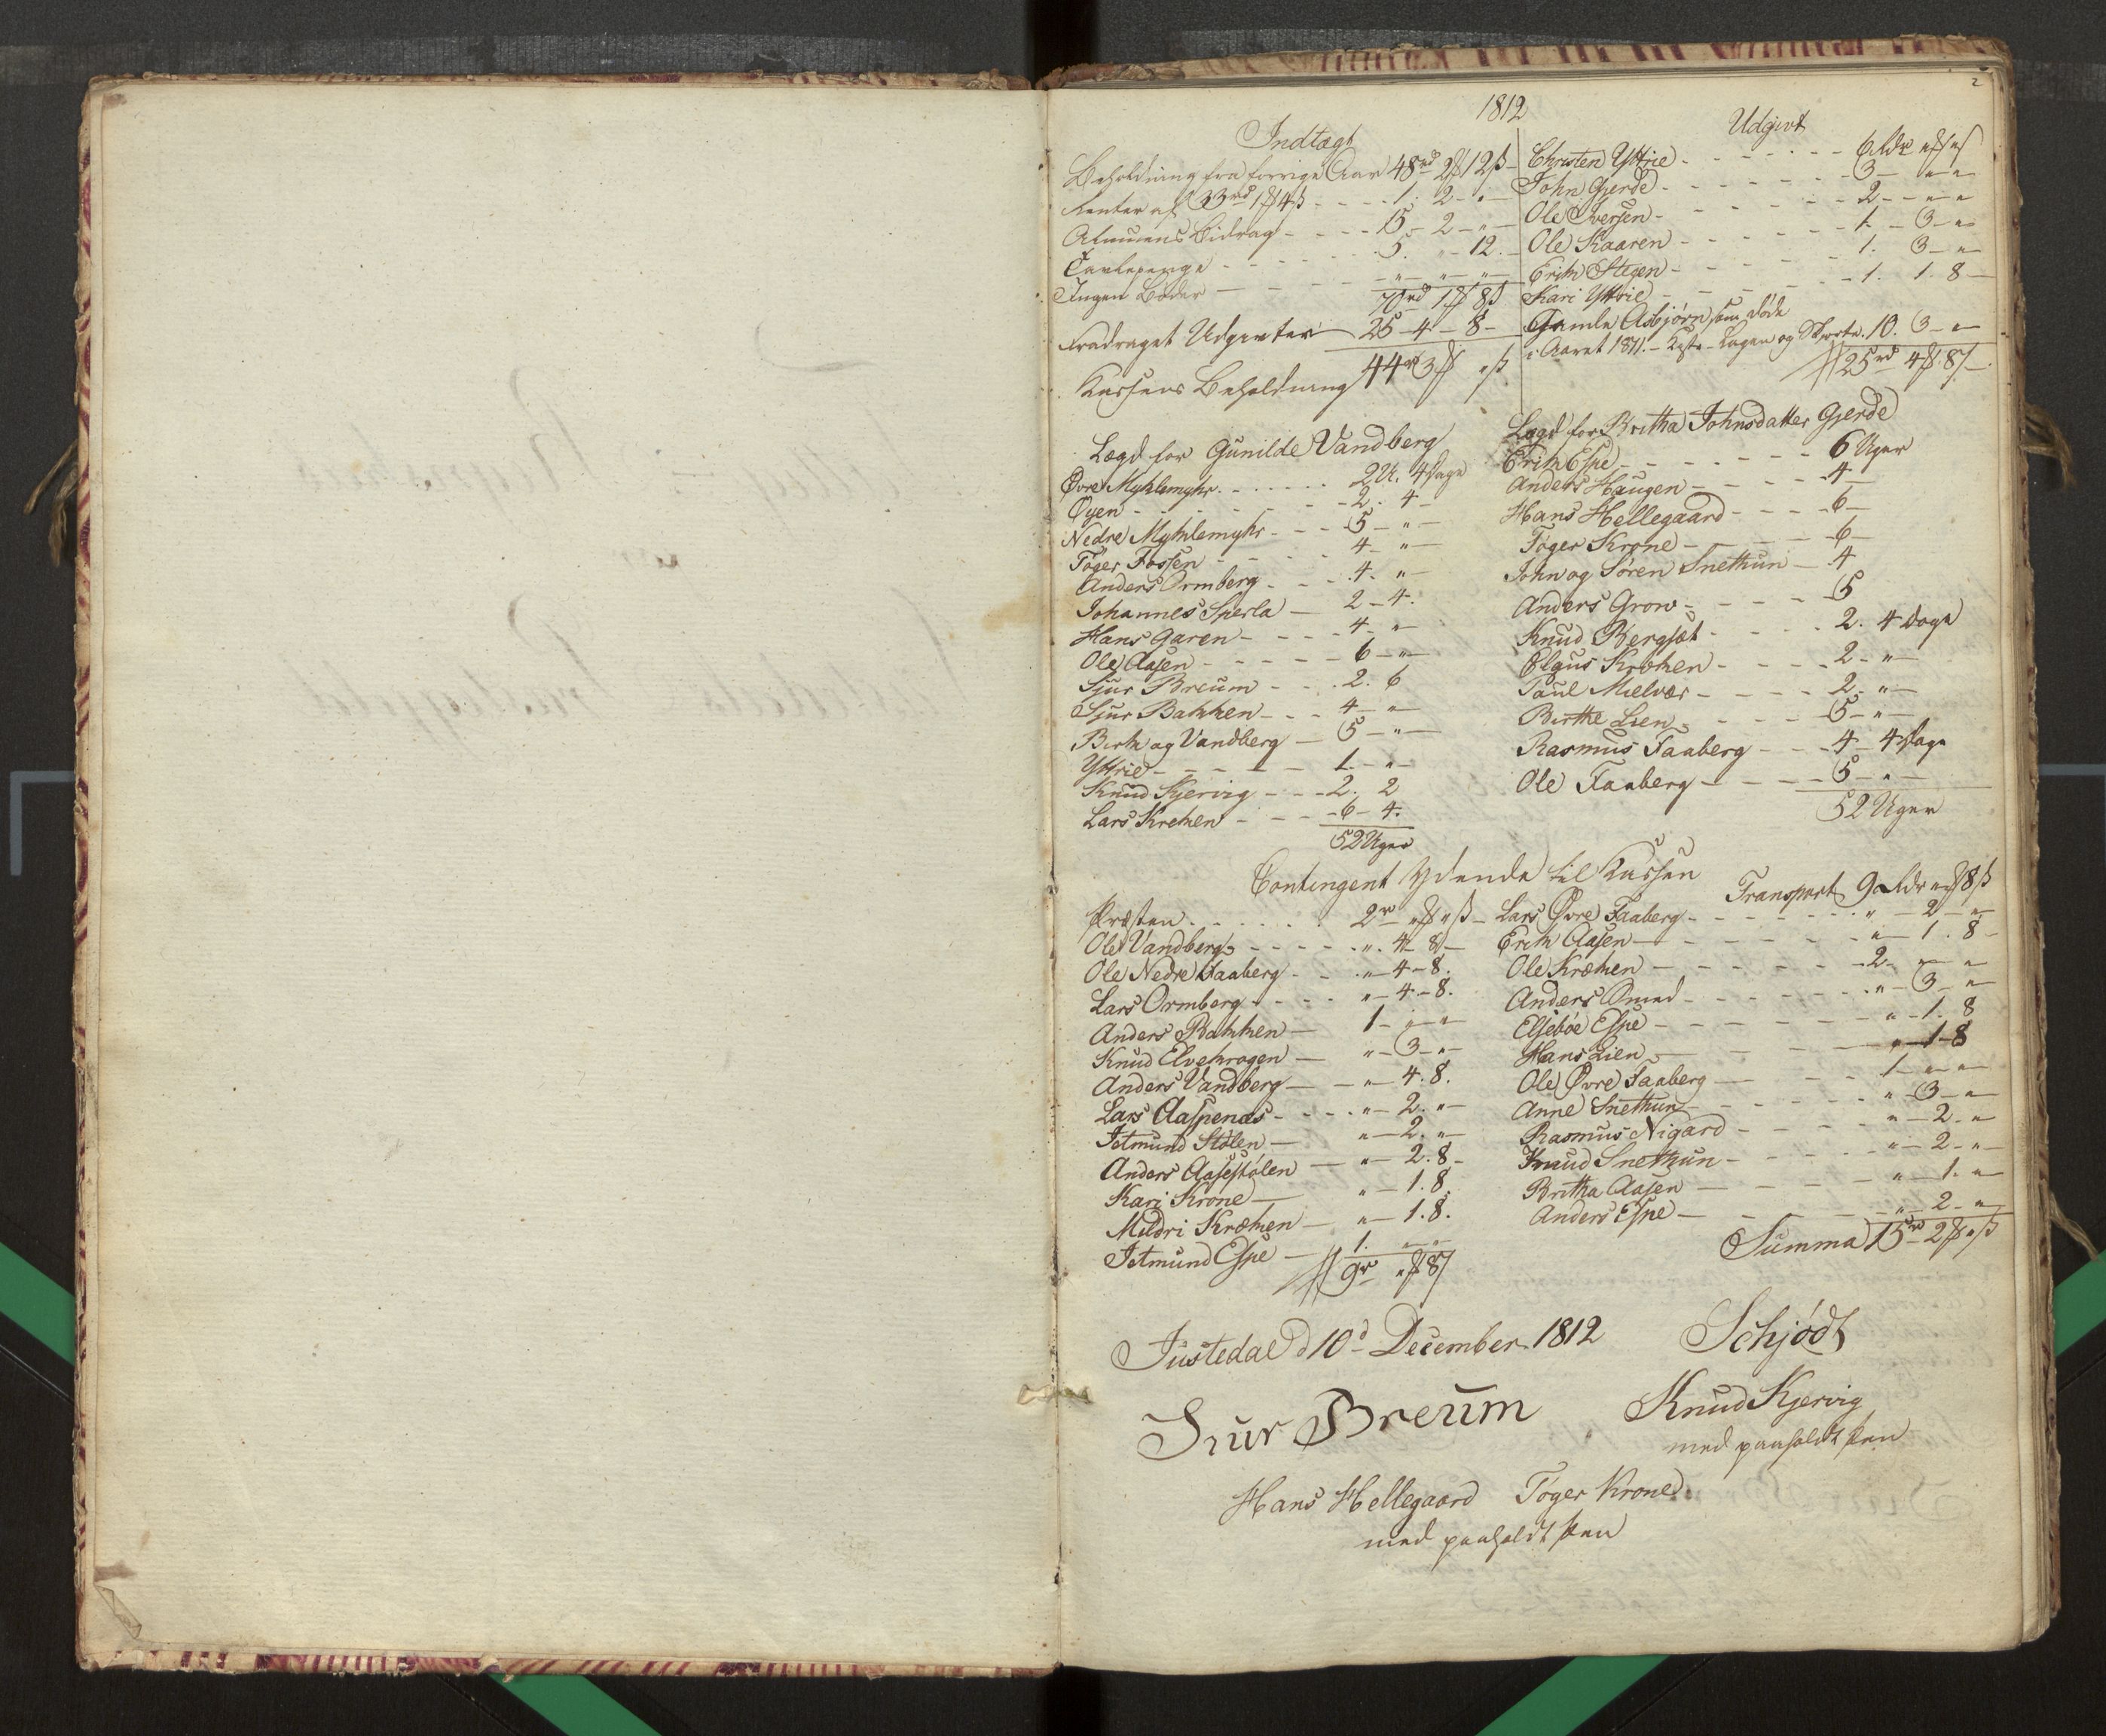 2
1812
Indtægt
Beholdning fra forrige Aar 48rd 2ß 12s
Renter af 33rd 1ß 4s - - - - 1. 2 - " -
Almuens Bidrag - - - - 15 - 2 - " -
Tavlepenge - - - - - - 5. " - 12. -
Ingen Bøder - - - - - " - " - " -
70rd 1ß 8s
Fradraget Udgivter 25 - 4 - 8 -
Kassens Beholdning 44rd 3ß "s
Udgivt
Christen Yttrie - - - - - - 6 Rdr "ß "s
John Gjerde - - - - - - 3 - " - "
Ole Iversen - - - - - - 2 - " - "
Ole Kaaren - - - - - - 1 - 3 - "
Erik Stegen - - - - - - 1. 3 - "
Kari Yttrie - - - - - - 1. 1. 8 -
Gamle Asbjørn som døde
i Aaret 1811. - Kiste - Lagen og Skjorte. 10. 3 - "
25rd 4ß 8s
Lægd for Gunilde Vandberg
Øvre Myklemyhr - - - - - 2 U. 4 Dage
Øyen - - - - - - 2. 4 -
Nedre Myhlemyhr - - - 5 - " -
Tøger Fossen - - - - 4 - " -
Anders Ormberg - - - 4. " -
Johannes Sperla - 2 - 4.
Hans Garen - - - - 4 - " -
Ole Aasen - - - - - 6 - " -
Sjur Breum - - - 2. 6
Sjur Bakken - - - 4 - " -
Birk og Vandberg - 5 - " -
Yttrie - - - - - - 1. - " -
Knud Kjervig - - - 2. 2
Lars Kreken - - - 6 - 4.
52 Uger
Lægd for Britha Johnsdatter Gjerde
Erik Espe - - - - - - - 6 Uger
Anders Haugen - - - - 4 -
Hans Hellegaard - - - - 6 -
Tøger Krone - - - - - 6 -
John og Søren Snethun - 4
Anders Grow - - - - - 5
Knud Bergset - - - - 2. 4 Dage
Claus Krøken - - - - 2 - " -
Paul Mielvær - - - - 2 - " -
Birthe Lien - - - - - 5 - " -
Rasmus Faaberg - - - 4 - 4 Dage
Ole Faaberg - - - - - 5 - " -
52 Uger
Contingent Ydende til Kassen
Præsten - - - - - - 2r "ß "s
Ole Vandberg - - - - - - ". 4 - 8 -
Ole Nedre Faaberg - - - " - 4 - 8.
Lars Ormberg - - - - " - 4 - 8.
Anders Bakken - 1 - " - "
Knud Elvekrogen - " - 3 - " -
Anders Vandberg - - " - 4. 8.
Lars Aaspenæs - - - - " - 2. " -
Jetmund Stølen - " - 2. " -
Anders Aasestølen - " - 2. 8 -
Kari Krone - " - 1. 8.
Mildri Kræken - " - 1. 8.
Jetmund Espe - 1. " - "
9r "ß 8s
Transport 9 Rdr "ß 8s
Lars Øvre Faaberg - - - - - - " - 2 - "
Erik Aasen - - - - - - " - 1. 8 -
Ole Kræken - - - - - - 2 - " - "
Anders Qmed - - - - - - " - 3 - "
Elsebøe Espe - - - - - - " - 1. 8
Hans Lien - - - - - - " - 1 - 8
Ole Øvre Faaberg - - - - 1 - " - "
Anne Snethun - - - - - " - 3 - "
Rasmus Nigard - - - - - " - 2 - "
Knud Snethun - - - - - " - 2 - "
Britha Aasen - - - - - " - 1. "
Anders Espe - - - - - " - 2 - "
Summa 15rd 2ß "s
Justedal d 10d December 1812
Schjødt
Siur Breum
Knud Kjervig
med paaholdt Pen
Hans Hellegaard Tøger Krone
med paaholdt Pen